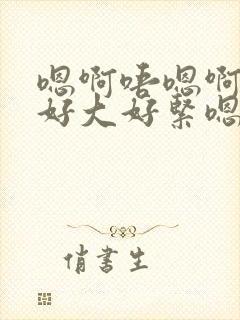 嗯啊唔嗯啊
好大好紧嗯
俏书生